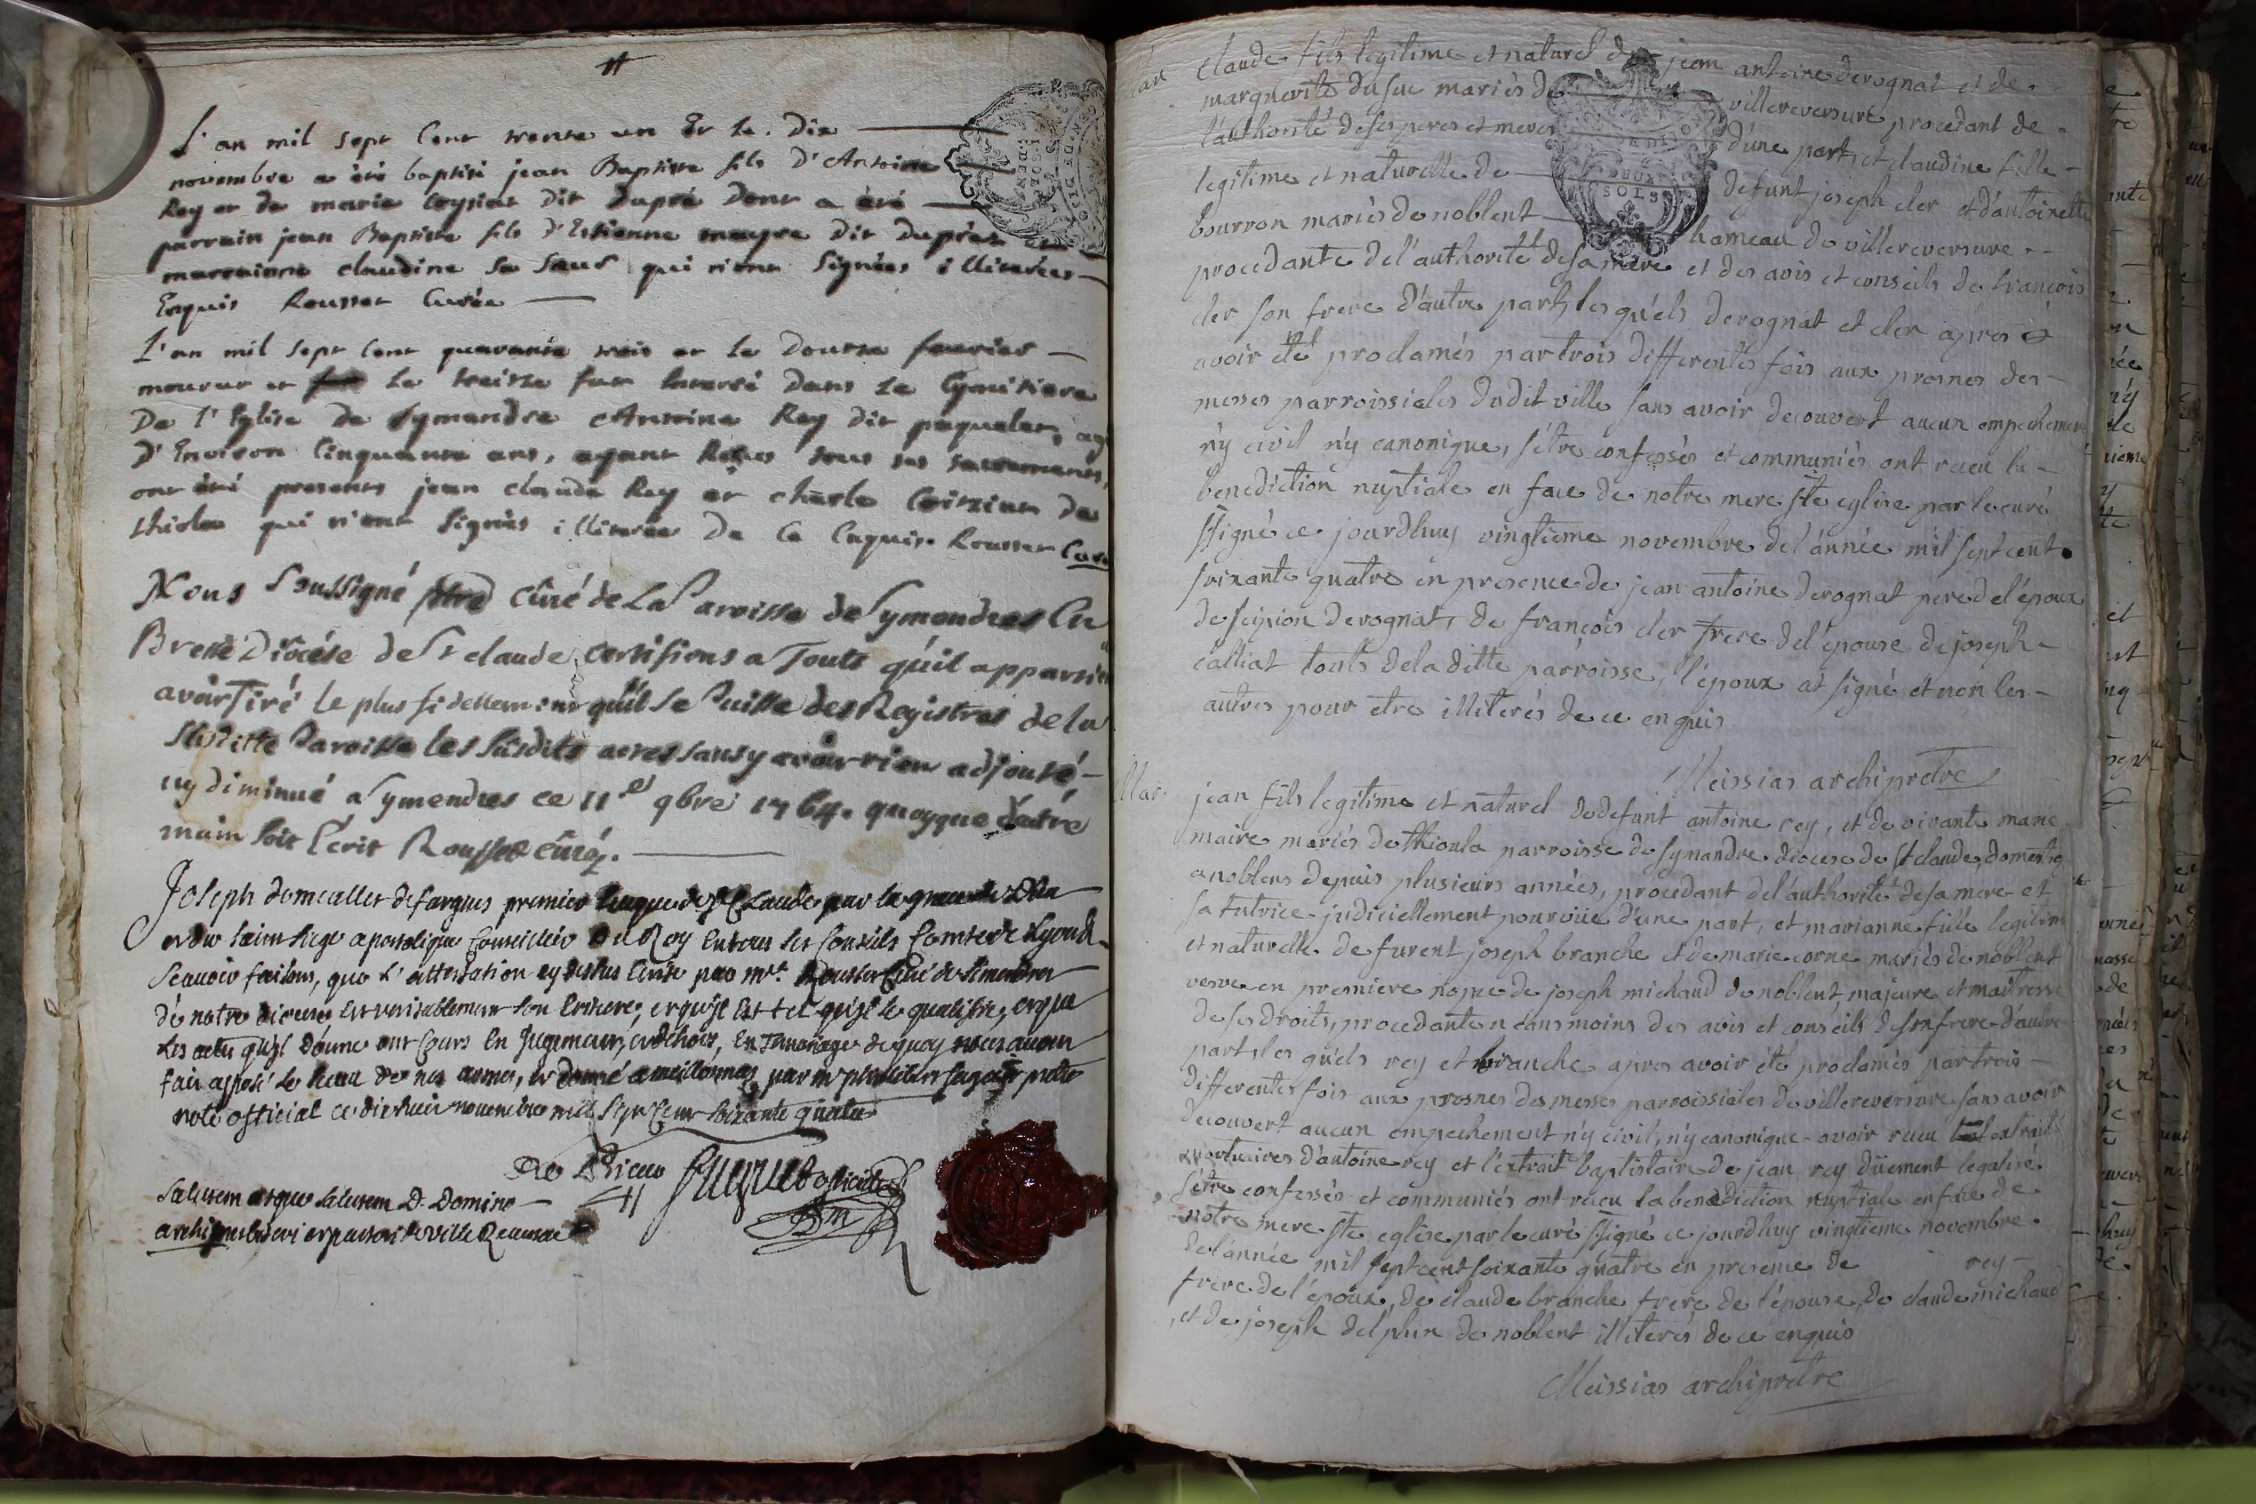 L'an mil sept Cent trente un Et le. Dix
novembre a été baptisé jean Baptiste fils d'Antoine
Rey et de marie Coysiat dit dupré dont a été
parrain jean Baptiste fils d'Estienne mayre dit duprés
marrainne claudine sa Seur qui n'ont signées illiterées
Enquis Rousset Curée
L'an mil sept Cent quarante trois et le Douze feurier
mourut et le treize fut Enterré dans le Cymitiere
De l'Eglise de Symandre Antoine Rey dit paquelet,
D'Environ Cinquante ans, ayant Reçus tous ses sacrements,
ont été presents jean claude Rey et charle de
thiola qui n'ont signés illiterée De Ce Enquis. Rousset Curé
Nous Soussigné ptre Curé de La Paroisse de Symendres En
Bresse Diocése de St claude, Certifions a Touts qu'il appartient
avoir Tiré le plus fidellement qu'il se Puisse des Registres de la
Susditte Paroisse les susdits actes sans y avoir rien adjouté
ny diminué a Symendres ce 11e 9bre 1764. quoyque d'autre
main soit l'écrit Rousset Curé.
Joseph demeallet defargues premier Eveque de St Claude par la grace de Dieu
et du saint siege apostolique Conseiller du Roy En tous ses Conseils Comte de Lyon &
Scavoir faisons, que L'attestation cy dessus Ecrite par Mre Rousset Curé de Simandres
de notre diocese Est veritablement son Ecriture, et qu'il Est tel qu'il se qualifie, et que
Les actes qu'il donne ont Cours En Jugement, et dehors, En Temoignage de quoy nous avons
fait apposé le sceau de nos armes, et donné a
note official ce dixhuit novembre mil sept Cent soixante quatre
official
Salutem atque salutem D. Domino
Mar
claude fils legitime et naturel de jean antoine derognat et de
marguerite dusuc mariés de villereversure procedant de
l'authorité de ses peres et meres d'une part, et claudine fille
legitime et naturelle de defunt joseph cler et d'antoinette
bourron mariés de noblent hameau de villereversure
procedante de l'authorité de sa mere et des avis et conseils de francois
cler son frere d'autre part, les qu'els derognat et cler apres
avoir eté proclamés par trois differentes fois aux prosnes des
messes parroissiales dudit ville sans avoir decouvert aucun empechement
n'y civil n'y canonique, s'étre confessés et communiés ont recu la
benediction nuptiale en face de notre mere ste eglise par le curé
ssigné ce jourdhuy vingtieme novembre de l'année mil sept cent
soixante quatre en presence de jean antoine derognat pere de l'époux
de scipion derognat, de francois cler frere de l'epouse de joseph
calliat touts de la ditte parroisse, l'époux at signé et non les
autres pour etre illiterés de ce enquis
Meissias archipretre
Mar
jean fils legitime et naturel de defunt antoine rey, et de vivante marie
maire mariés de thioula parroisse de symandre diocese de st claude, domestiq
a noblens depuis plusieurs années, procedant de l'authorité de sa mere et
sa tutrice judiciellement pourvüe d'une part, et marianne fille legitime
et naturelle de furent joseph branche et de marie corne mariés de noblent
vesve en premiere nopce de joseph michaud de noblent majeure et maitresse
de ses droits, procedante neansmoins des avis et conseils de son frere d'autre
part, les qu'els rey et branche apres avoir été proclamés par trois
differentes fois aux prosnes des messes parroissiales de villereversure sans avoir
decouvert aucun empechement n'y civil, n'y canonique avoir recu extrait
mortuaires d'antoine rey et l'extrait baptistaire de jean rey düement legalisé
s'étre confessés et communiés ont recu la benediction nuptiale en face de
notre mere ste eglise par le curé ssigné ce jourdhuy vingtieme novembre
de l'année mil sept cent soixante quatre en presence de rey
frere de l'époux, de claude branche frere de l'épouse, de claude michaud
et de joseph delphin de noblent illiterés de ce enquis
Meissias archipretre